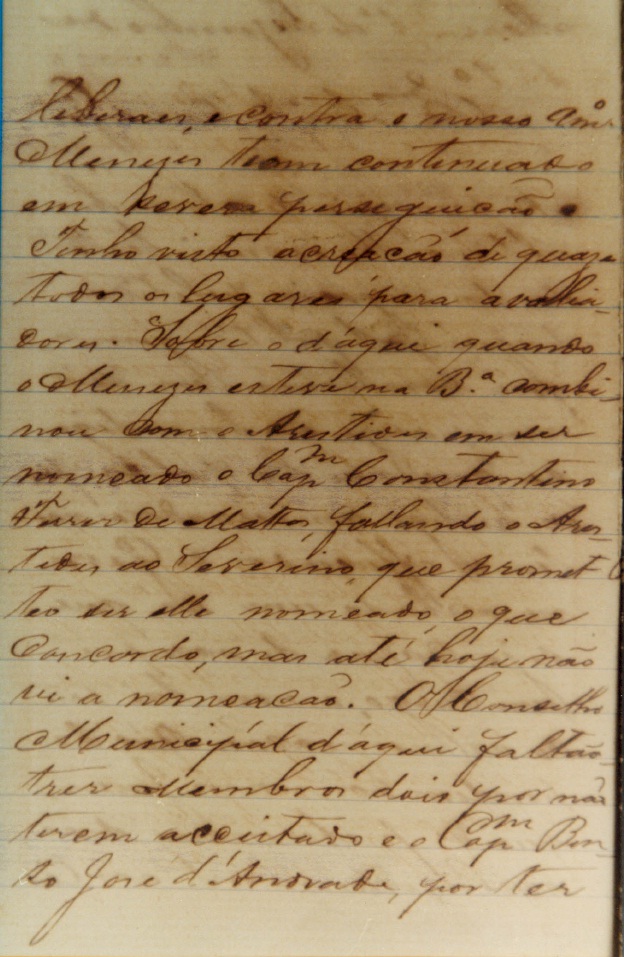 liberaes, e contra o nosso Am.º
Menezes team continuado
em severa perseguicão.
Tenho visto a creacão de quaze
todos os lugares para avalia-
dores. Sobre o d'aqui quando
o Menezes esteve na B.ª combi-
nou com o Aristides em ser
nomeado o Cap.m Constantino
de Mattos, fallando o Aris-
tides ao Severino, que promet-
teo ser elle nomeado, o que
Concordo, mas até hoje não
vi a nomeacão. O Conselho
Municipal d'aqui faltão
tres Membros dois por não
terem acceitado e o Cap.m Ben-
to Jose d'Andrade, por ter